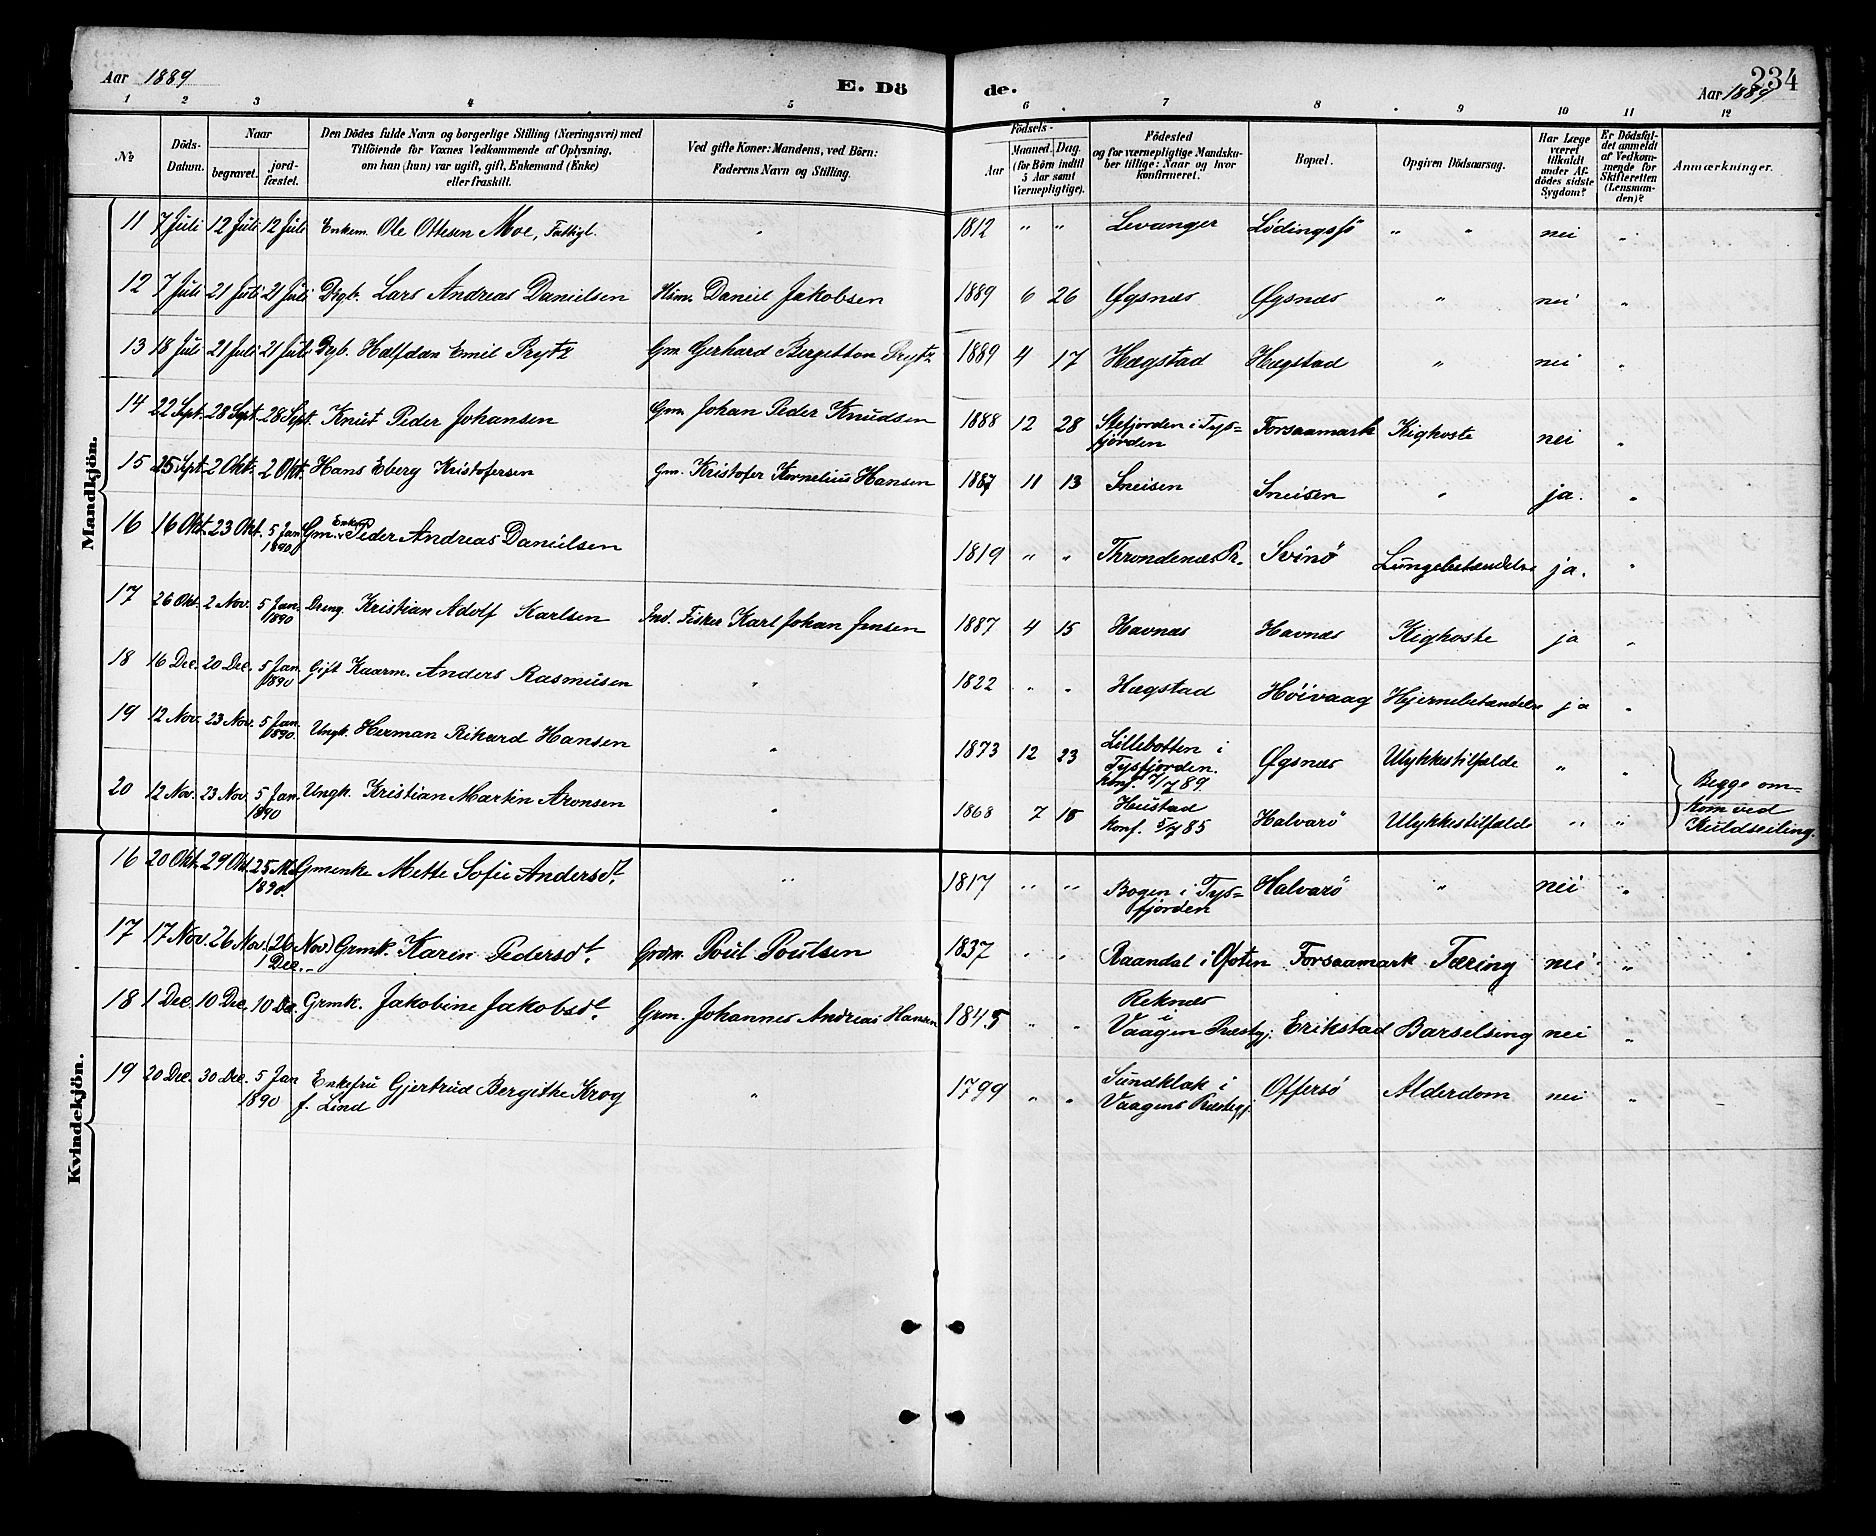 Aar 1889 E. Dö de. Aar 1889 234
1 2 3 4 5 6 7 8 9 10 11 12
№
Döds-Datum.
Naar
begravet.
jord-fæstet.
Den Dödes fulde Navn og borgerlige Stilling (Næringsvei) med
Tilföiende for Voxnes Vedkommende af Oplysning,
om han (hun) var ugift, gift, Enkemand (Enke)
eller fraskilt.
Ved gifte Koner: Mandens, ved Börn:
Faderens Navn og Stilling.
Födsels-
Aar
Maaned. Dag.
(for Börn indtil
5 Aar samt
Værnepligtige).
Födested
og for værnepligtige Mandska-
ber tillige: Naar og hvor
konfirmeret.
Bopæl.
Opgiven Dödsaarsag.
Har Læge
været
tilkaldt
under Af-
dödes sidste
Sygdom?
Er Dödsfal-
det anmeldt
af Vedkom-
mende for
Skifteretten
(Lensman-
den)?
Anmærkninger.
Mandkjön.
11 7 Juli 12 Juli 12 Juli Enkem. Ole Ottesen Moe, Fattigl. " 1812 " " Levanger Lødingsfjo " " nei "
12 7 Juli 21 Juli 21 Juli Drgb. Lars Andreas Danielsen Husm. Daniel Jakobsen 1889 6 26 Øgsnæs Øgsnæs " nei "
13 18 Juli 21 Juli 21 Juli Drgb. Halfdan Emil Prytz Gm. Gerhard Bergitton Prytz 1889 4 17 Hægstad Hægstad " nei "
14 22 Sept. 28 Sept. 28 Sept. Knut Peder Johansen Gm. Johan Peder Knudsen 1888 12 28 Stefjorden i Tys=
fjorden Forsaamark Kighoste nei "
15 25 Sept. 2 Okt. 2 Okt. Hans Eberg Kristofersen Gm. Kristofer Kornelius Hansen 1887 11 13 Sneisen Sneisen " ja. "
16 16 Okt. 23 Okt. 5 Jan.
1890 Gm. Enkem. Peder Andreas Danielsen 1819 " " Throndenæs Pr. Svinö Lungebetændelse ja. "
17 26 Okt. 2 Nov. 5 Jan.
1890 Dreng. Kristian Adolf Karlsen Ind. Fisker Karl Johan Jensen 1887 4 15 Havnæs Havnæs Kighoste ja "
18 16 Dec. 20 Dec. 5 Jan.
1890 Gift Kaarm. Anders Rasmusen " 1822 " " Hægstad Höivaag Hjernebetændelse ja "
19 12 Nov. 23 Nov. 5 Jan.
1890 Ungk. Herman Rikard Hansen " 1873 12 23 Lillebotten i
Tysfjorden.
Konf. 7/7 89. Øgsnæs Ulykkestilfælde " "
20 12 Nov. 23 Nov. 5 Jan.
1890 Ungk. Kristian Martin Aronsen " 1868 7 18 Heustad
Konf. 5/7 85 Halvarö Ulykkestilfælde " " Begge om-
kom ved
Kuldseiling.
Kvindekjön.
16 20 Okt. 29 Okt. 25 M
1890. Gmenke Mette Sofie Andersdt. " 1817 " " Bogen i Tys=
fjorden Halvarö " nei "
17 17 Nov. 26 Nov. (26 Nov.)
1 Dec. Grmk. Karen Pedersdt. Grdm. Poul Poulsen 1837 " " Raandal i Ofoten Forsaamark Tæring nei "
18 1 Dec. 10 Dec. 10 Dec. Grmk. Jakobine Jakobsdt. Grm. Johannes Andreas Hansen 1845 " " Reknes
i
Vaagen Præstgj. Erikstad Barselseng nei "
19 20 Dec. 30 Dec. 5 Jan
1890 Enkefru Gjertrud Bergithe Krog
f. Lind " 1799 " " Sundklak i
Vaagens Præstegj. Offersö Alderdom nei "